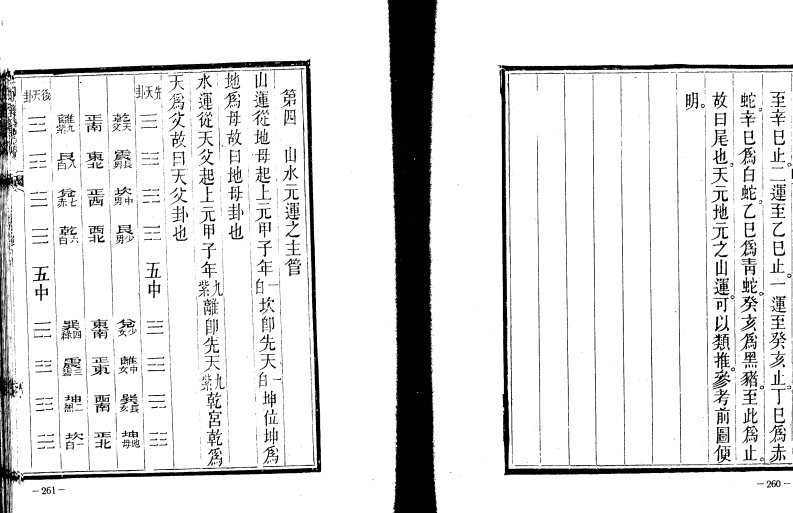 至辛巳止。二運至乙巳止。一運至癸亥止。丁巳爲赤
蛇。辛巳爲白蛇。乙巳爲靑蛇。癸亥爲黑豬。至此爲止。
故曰尾也。天元地元之山運。可以類推。參考前圖便
明。
－260－
第四　山水元運之主管
山運從地母起上元甲子年一白坎卽先天一白坤位坤爲
地爲母故曰地母卦也
水運從天父起上元甲子年九紫離卽先天九紫乾宮乾爲
天爲父故曰天父卦也
先天卦　五中
乾天父　震長男　坎中男　艮少男　兌少女　離中女　巽長女　坤地母
正南　東北　正西　西北　東南　正東　西南　正北
離九紫　艮八白　兌七赤　乾六白　巽四綠　震三碧　坤二黑　坎一白
後天卦　五中
－261－